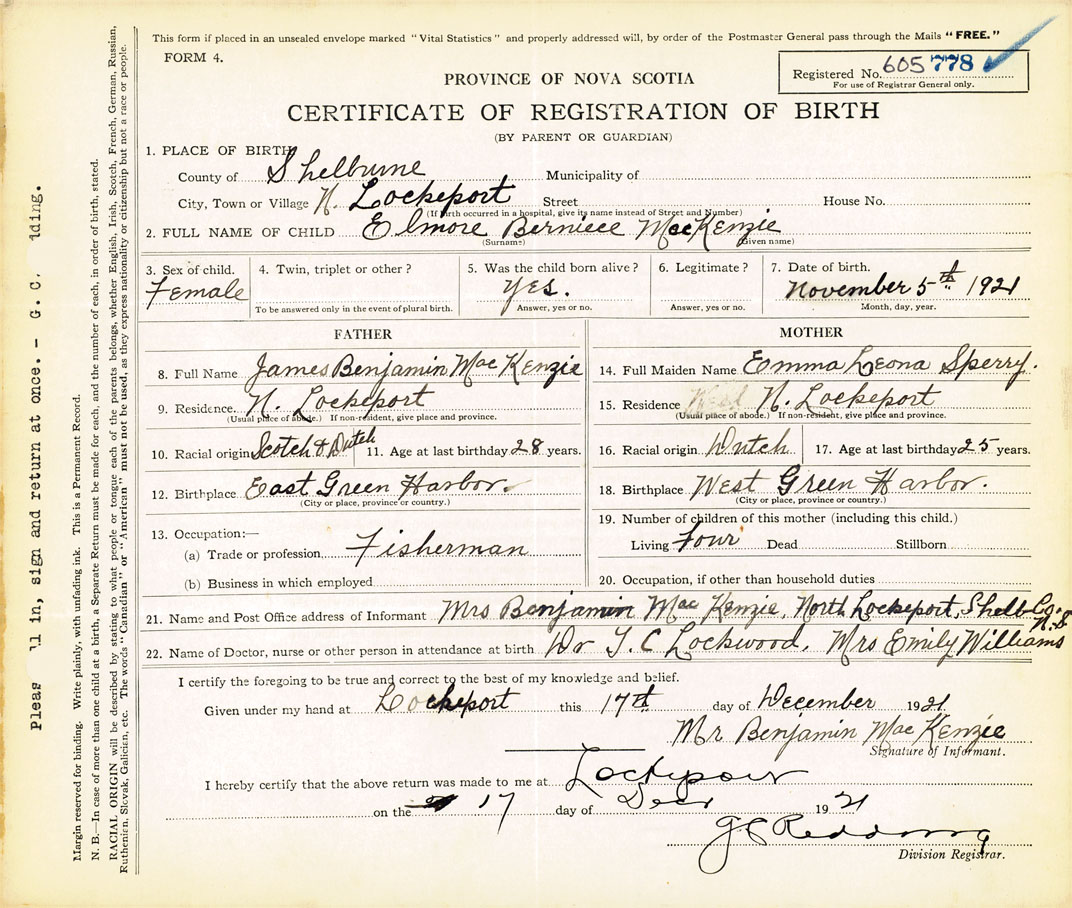 This form if placed in an unsealed envelope marked "Vital Statistics" and properly addressed will, by order of the Postmaster General pass through the Mails "FREE."
FORM 4.
Registered No. 605778
For use of Registrar General only.
PROVINCE OF NOVA SCOTIA
CERTIFICATE OF REGISTRATION OF BIRTH
(BY PARENT OR GUARDIAN)
1. PLACE OF BIRTH
County of Shelburne Municipality of
City, Town or Village N. Lockeport Street House No.
(If birth occurred in a hospital, give its name instead of Street and Number)
2. FULL NAME OF CHILD Elmore Berniece MacKenzie
(Surname) (Given name)
3. Sex of child. 4. Twin, triplet or other? 5. Was the child born alive? 6. Legitimate? 7. Date of birth.
Female Yes. November 5th 1921
To be answered only in the event of plural birth. Answer, yes or no. Answer, yes or no. Month, day, year.
FATHER
8. Full Name James Benjamin Mac Kenzie
9. Residence. N. Lockeport
(Usual place of abode.) If non-resident, give place and province.
10. Racial origin Scotch & Dutch 11. Age at last birthday 28 years.
12. Birthplace East Green Harbor.
(City or place, province or country.)
13. Occupation:—
(a) Trade or profession Fisherman
(b) Business in which employed
MOTHER
14. Full Maiden Name Emma Leona Sperry.
15. Residence West N. Lockeport
(Usual place of abode.) If non-resident, give place and province.
16. Racial origin Dutch 17. Age at last birthday 25 years.
18. Birthplace West Green Harbor.
(City or place, province or country.)
19. Number of children of this mother (including this child.)
Living Four Dead Stillborn
20. Occupation, if other than household duties
21. Name and Post Office address of Informant Mrs Benjamin Mac Kenzie, North Lockeport, Shelb Co. N.S
22. Name of Doctor, nurse or other person in attendance at birth Dr T. C Lockwood, Mrs Emily Williams
I certify the foregoing to be true and correct to the best of my knowledge and belief.
Given under my hand at Lockeport this 17th day of December 1921.
Mr Benjamin Mac Kenzie
Signature of Informant.
I hereby certify that the above return was made to me at Lockeport
on the 17 day of Decr 1921
Division Registrar.
Pleas ll in, sign and return at once. - G. C. lding.
Margin reserved for binding. Write plainly, with unfading ink. This is a Permanent Record.
N. B.—In case of more than one child at a birth, a Separate Return must be made for each, and the number of each, in order of birth, stated.
RACIAL ORIGIN will be described by stating to what people or tongue each of the parents belongs, whether English, Irish, Scotch, French, German, Russian,
Ruthenian, Slovak, Galician, etc. The words "Canadian" or "American" must not be used, as they express nationality or citizenship but not a race or people.